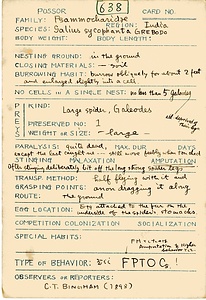 POSSOR 638 CARD NO.
FAMILY: Psammocharidae
REGION: India
SPECIES: Salius sycophanta GREBODO
BODY WEIGHT: BODY LENGTH:
NESTING GROUND: in the ground
CLOSING MATERIALS: soil
BURROWING HABIT: burrows obliquely for about 2 feet
and enlarged slightly into a cell
NO. CELLS IN A SINGLE NEST: no less than 5 Galeodes
PREY
KIND: Large spider, Galeodes
PRESERVED NO: 1
WEIGHT OR SIZE: - large -
PARALYSIS: quite dead, MAX. DUR. DAYS
except the last caught
STINGING MALAXATION AMPUTATION
after stinging deliberately bit off the long strong spider legs
TRANSP. METHOD: half flying with it and
GRASPING POINTS: anon dragging it along
ROUTE: the ground
EGG LOCATION: Egg attached to the fur on the
underside of the spider's stomach
COMPETITION COLONIZATION SOCIALIZATION
SPECIAL HABITS:
Amputation of legs
TYPE OF BEHAVIOR: FPTOC!
OBSERVERS OR REPORTERS:
C.T. BINGHAM (1898)